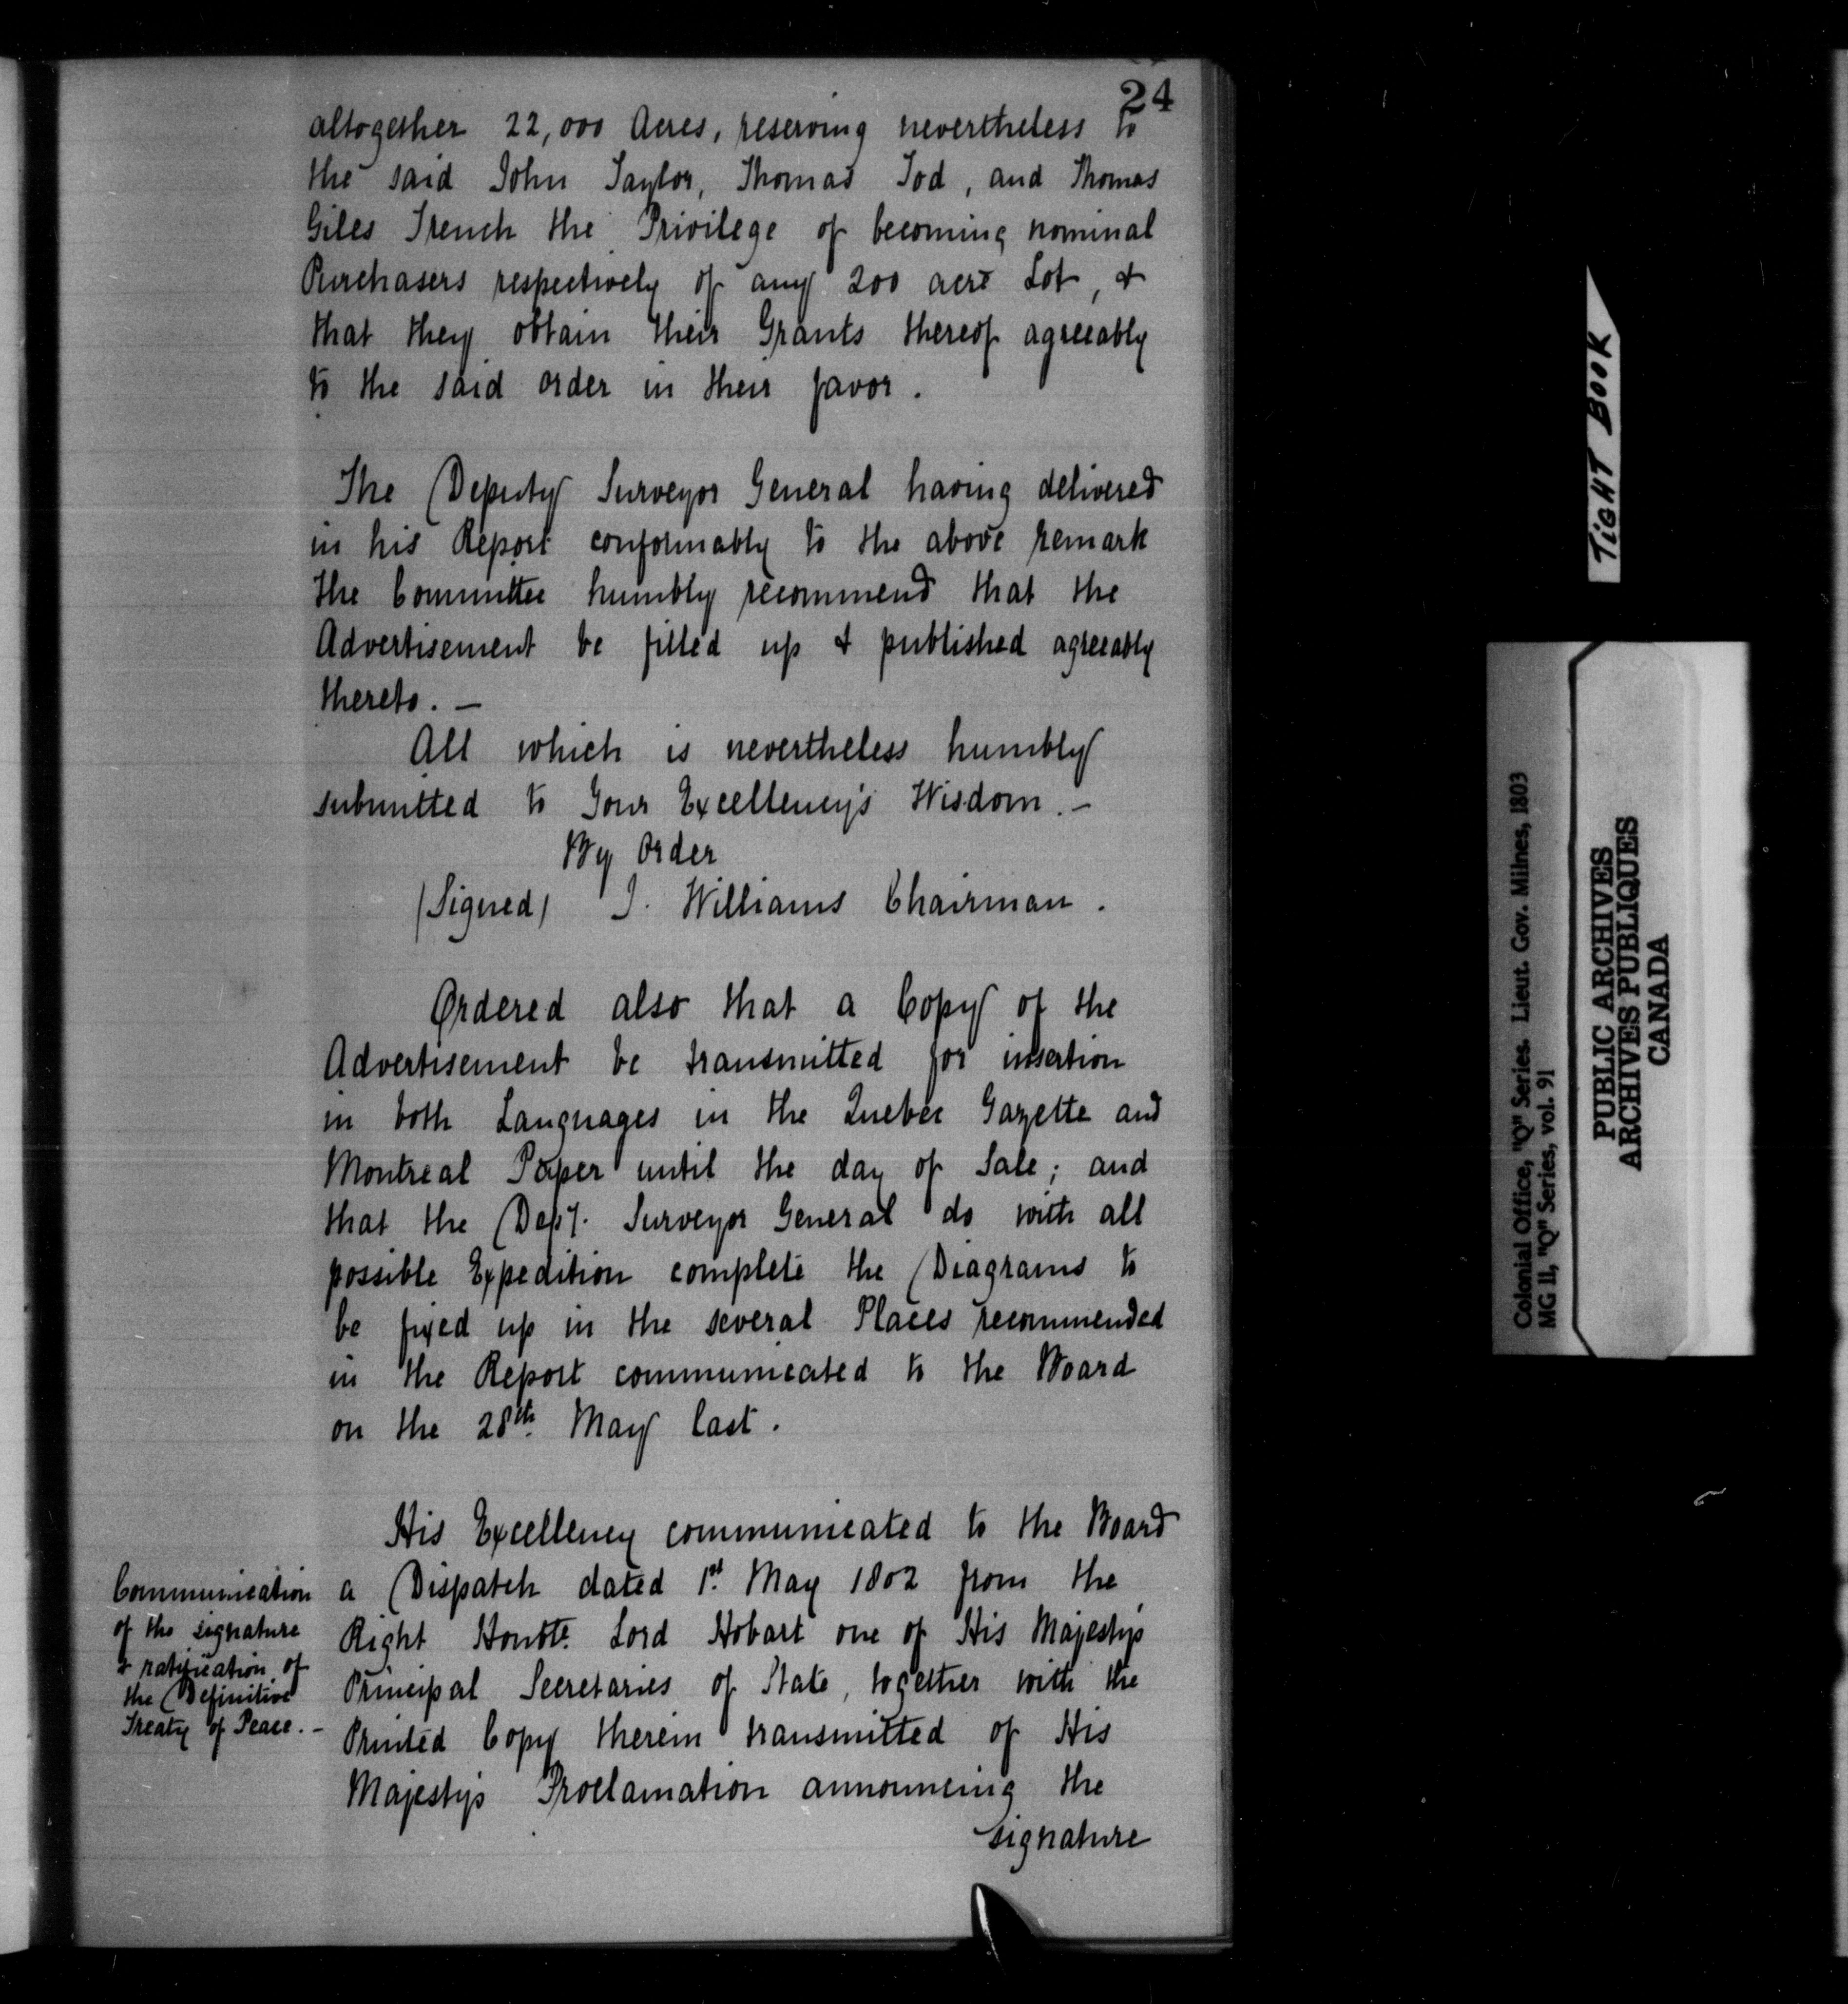 24
altogether 22,000 Acres, reserving nevertheless to
the said John Taylor, Thomas Tod, and Thomas
Giles French the Privilege of becoming nominal
Purchasers respectively of any 200 acre Lot, &
that they obtain their Grants thereof agreeably
to the said order in their favor.
The Deputy Surveyor General having delivered
in his Report conformably to the above remark
the Committee humbly recommend that the
Advertisement be filled up & published agreeably
thereto. —
All which is nevertheless humbly
submitted to Your Excellency's Wisdom. —
By Order
(Signed) J. Williams Chairman.
Ordered also that a Copy of the
Advertisement be transmitted for insertion
in both Languages in the Quebec Gazette and
Montreal Paper until the day of Sale; and
that the Depy. Surveyor General do with all
possible Expedition complete the Diagrams to
be fixed up in the several Places recommended
in the Report communicated to the Board
on the 28th May last.
His Excellency communicated to the Board
a Dispatch dated 1st May 1802 from the
Right Honble. Lord Hobart one of His Majestys
Principal Secretaries of State, together with the
Printed Copy therein transmitted of His
Majestys Proclamation announcing the
signature
Communication
of the signature
& ratification of
the Definitive
Treaty of Peace. —
TIGHT BOOK
Colonial Office, "Q" Series. Lieut. Gov. Milnes, 1803
MG 11, "Q" Series, vol. 91
PUBLIC ARCHIVES
ARCHIVES PUBLIQUES
CANADA